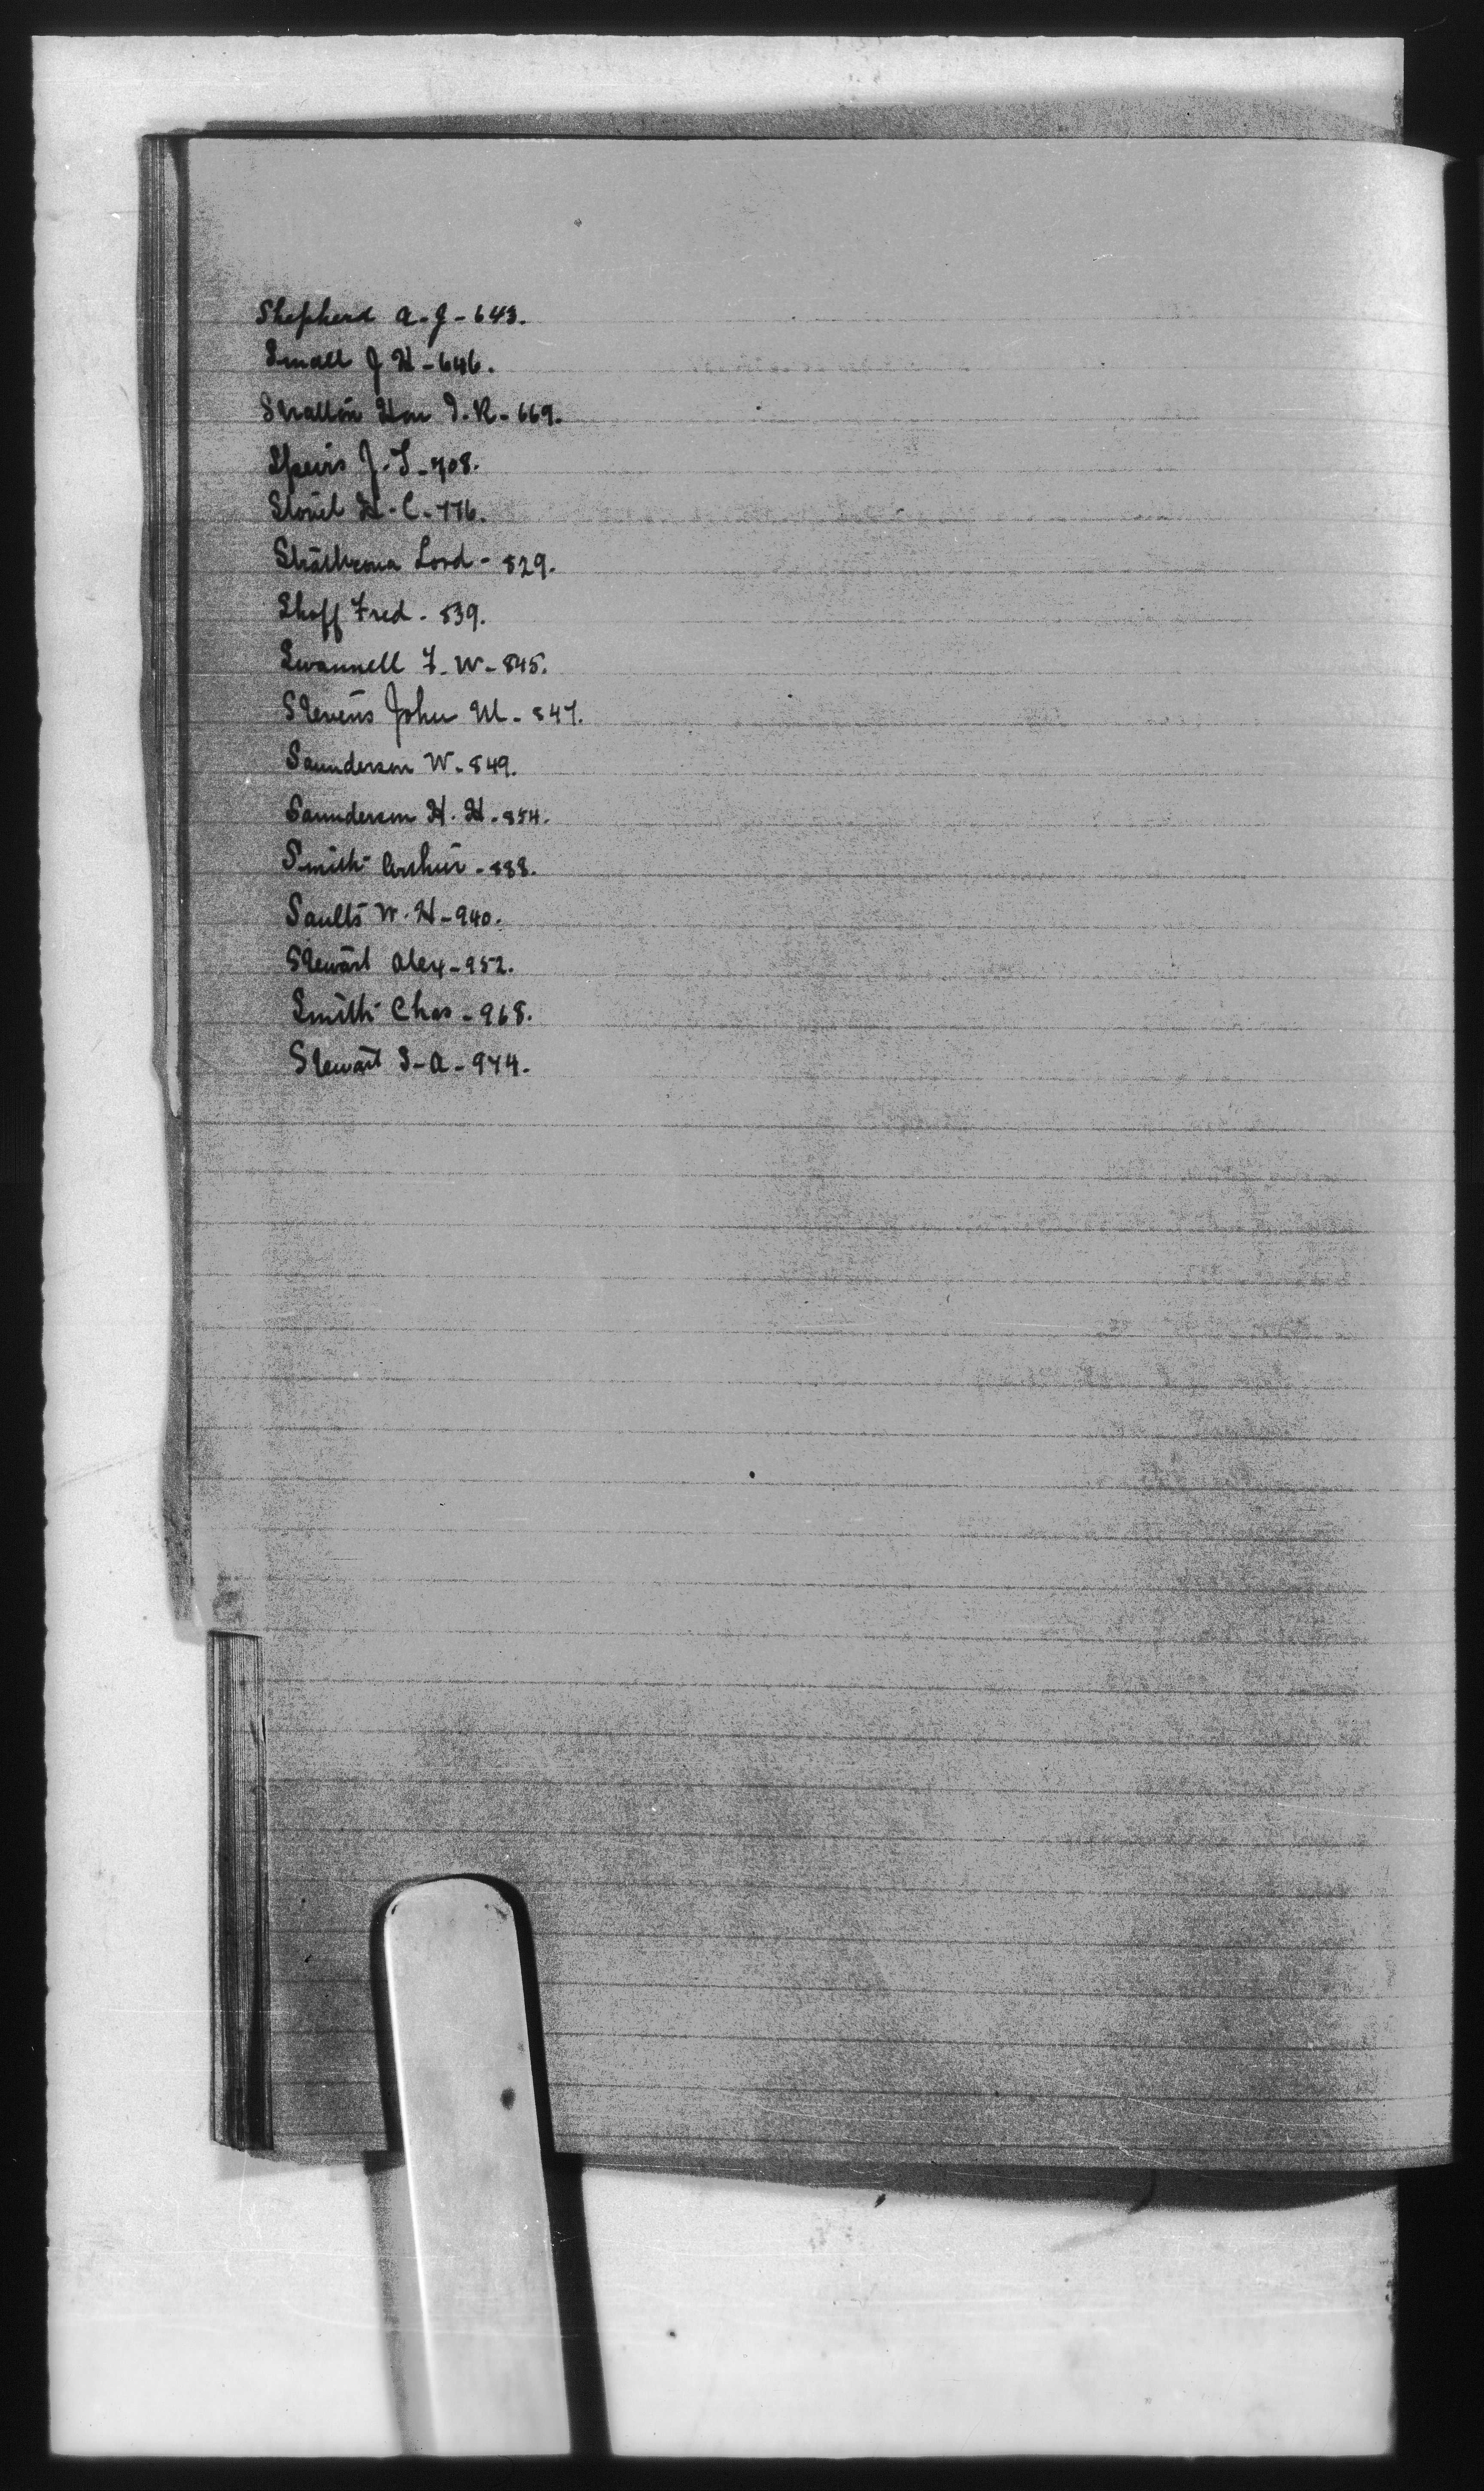 Shepherd A. J - 643.
Small J H - 646.
Stratton Hon J. R - 669.
Speirs J. T - 708.
H. C - 776.
Strathcona Lord - 829.
Shoff Fred - 839.
Swannell F. W - 845.
Stevens John M - 847.
Saunderson W - 849.
Saunderson H. H - 854.
Smith Arthur - 888.
Saults W. H - 940.
Stewart Alex - 952.
Smith Chas - 968.
Stewart S - A - 974.